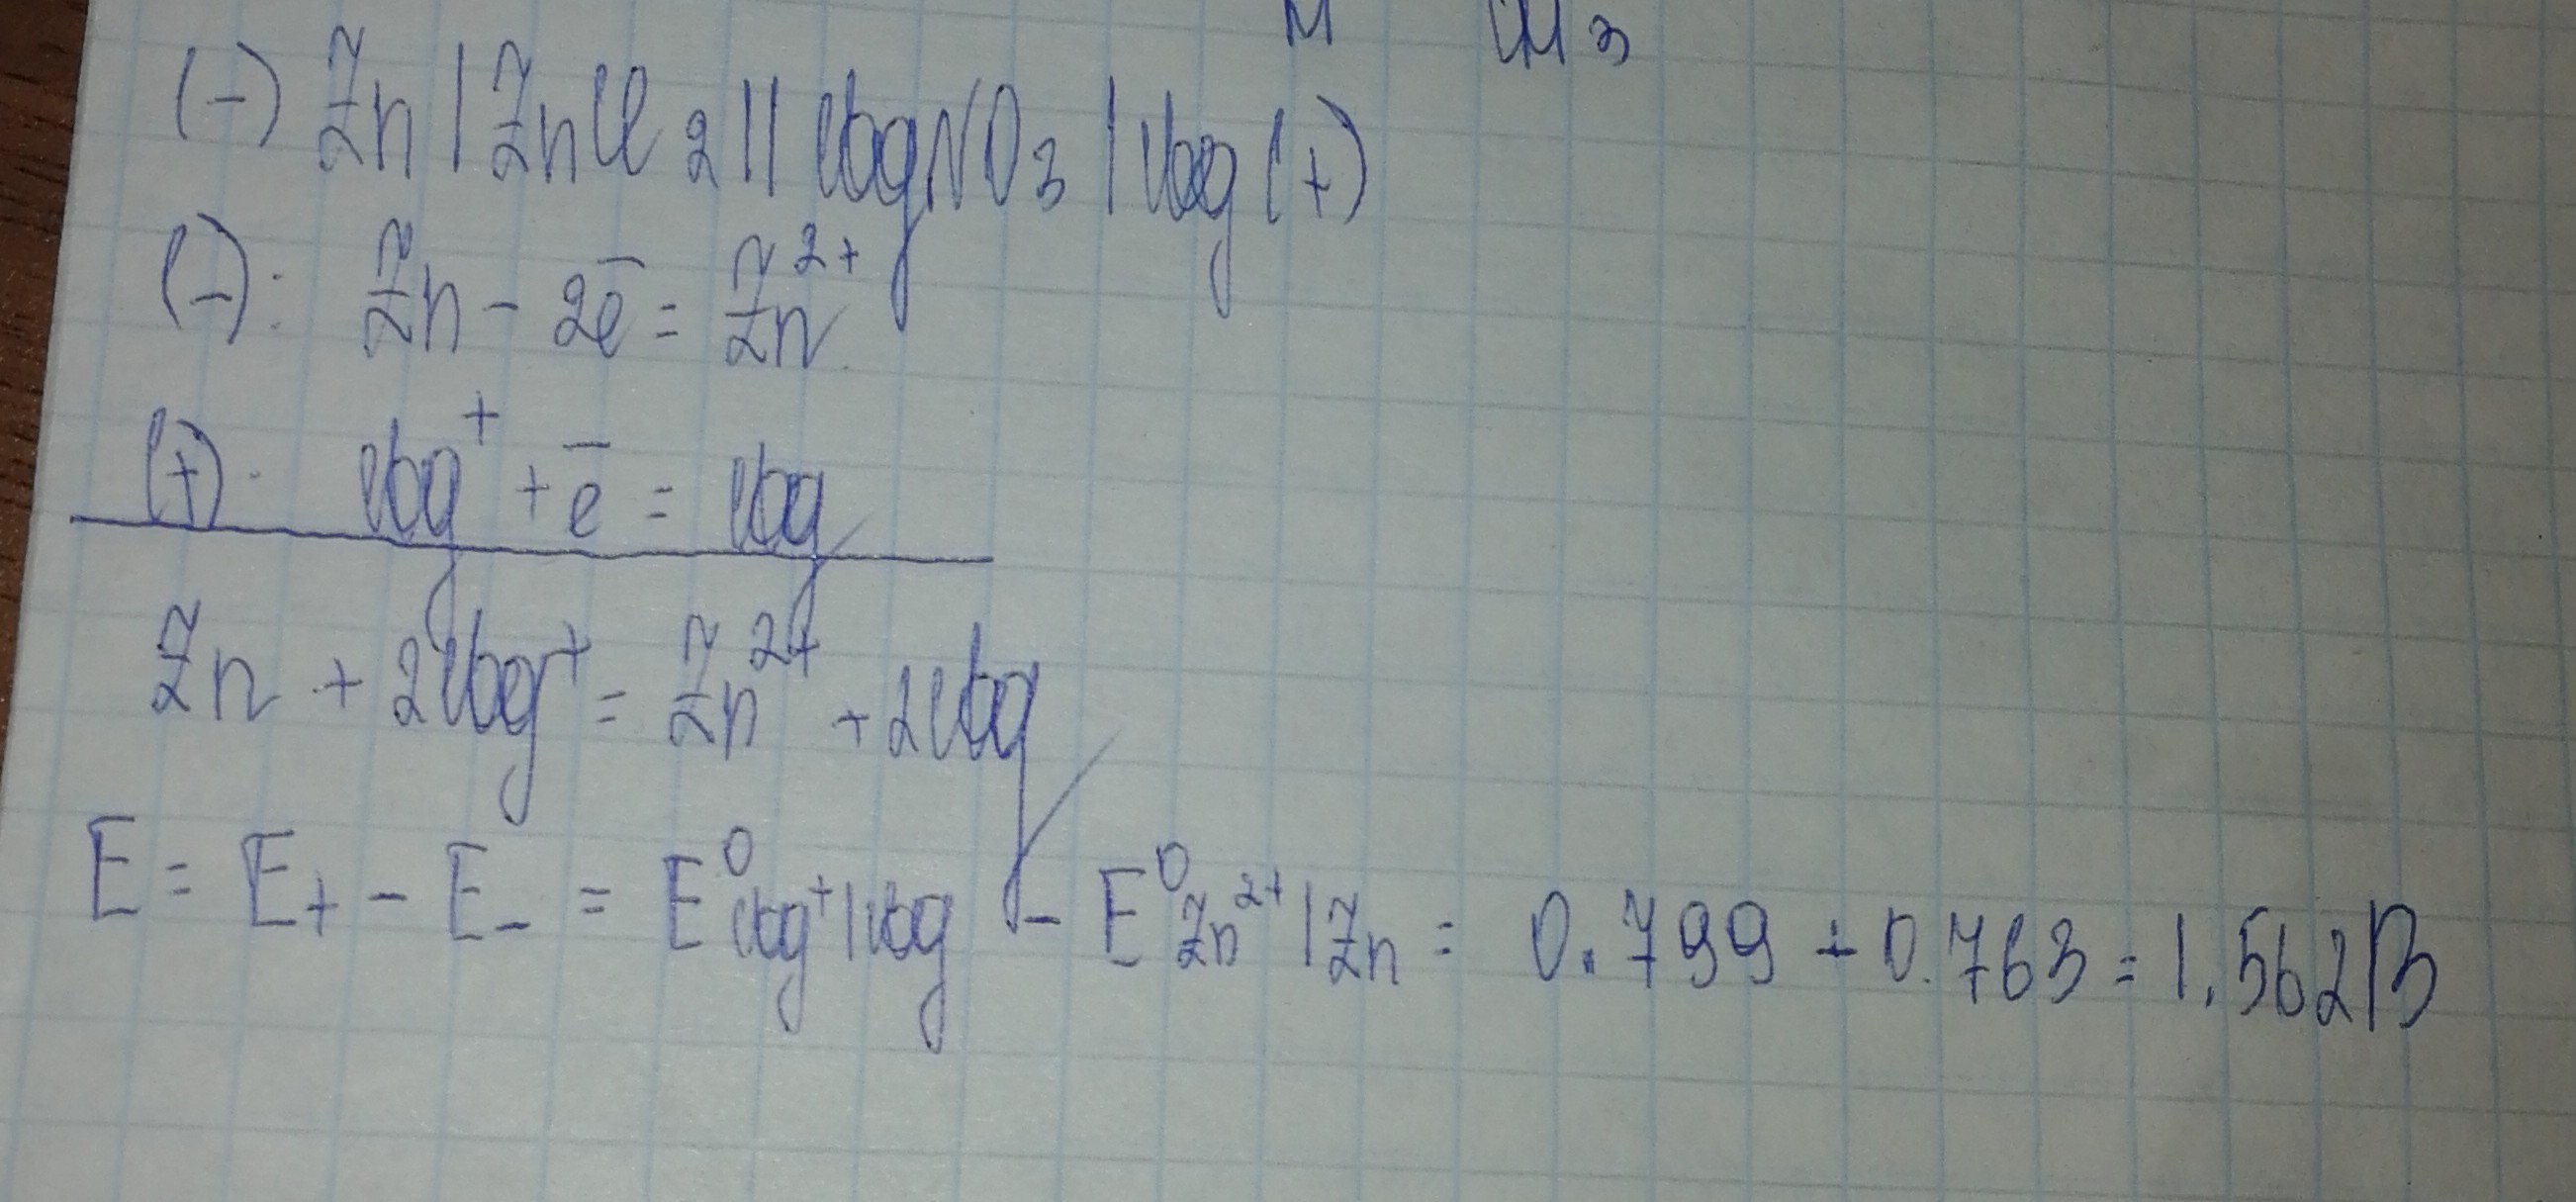 (-) Zn | ZnCl2 || AgNO3 | Ag (+)
(-): Zn - 2e̅ = Zn²⁺
(+): Ag⁺ + e̅ = Ag
Zn + 2Ag⁺ = Zn²⁺ + 2Ag
E = E₊ - E₋ = E⁰Ag⁺|Ag - E⁰Zn²⁺|Zn = 0.799 + 0.763 = 1.562В